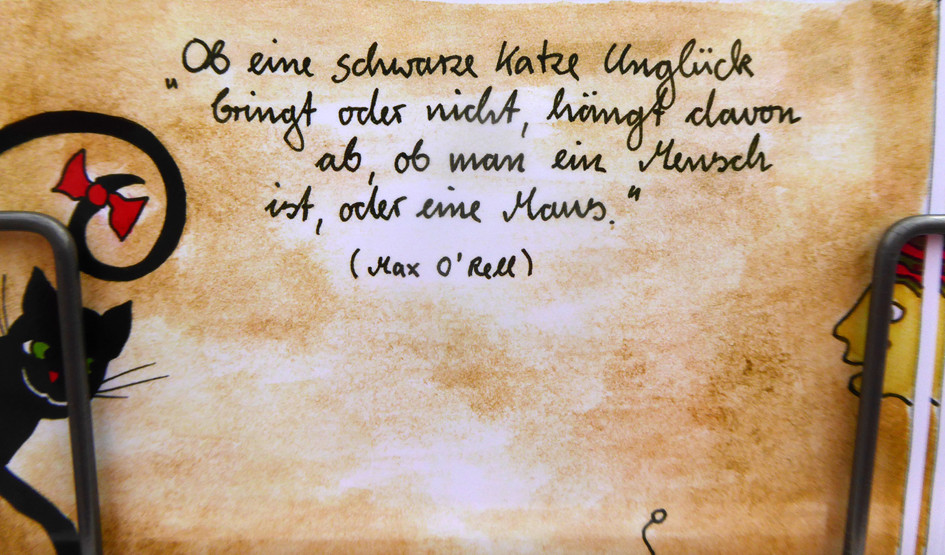 „Ob eine schwarze Katze Unglück
bringt oder nicht, hängt davon
ab, ob man ein Mensch
ist, oder eine Maus."
(Max O'Rell)